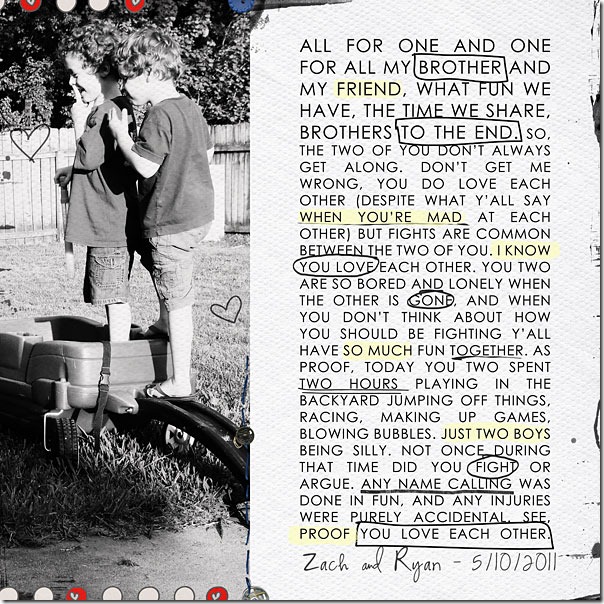 ALL FOR ONE AND ONE
FOR ALL MY BROTHER AND
MY FRIEND, WHAT FUN WE
HAVE, THE TIME WE SHARE,
BROTHERS TO THE END. SO,
THE TWO OF YOU DON'T ALWAYS
GET ALONG. DON'T GET ME
WRONG, YOU DO LOVE EACH
OTHER (DESPITE WHAT Y'ALL SAY
WHEN YOU'RE MAD AT EACH
OTHER) BUT FIGHTS ARE COMMON
BETWEEN THE TWO OF YOU. I KNOW
YOU LOVE EACH OTHER. YOU TWO
ARE SO BORED AND LONELY WHEN
THE OTHER IS GONE, AND WHEN
YOU DON'T THINK ABOUT HOW
YOU SHOULD BE FIGHTING Y'ALL
HAVE SO MUCH FUN TOGETHER. AS
PROOF, TODAY YOU TWO SPENT
TWO HOURS PLAYING IN THE
BACKYARD JUMPING OFF THINGS,
RACING, MAKING UP GAMES,
BLOWING BUBBLES. JUST TWO BOYS
BEING SILLY. NOT ONCE DURING
THAT TIME DID YOU FIGHT OR
ARGUE. ANY NAME CALLING WAS
DONE IN FUN, AND ANY INJURIES
WERE PURELY ACCIDENTAL. SEE,
PROOF YOU LOVE EACH OTHER.
Zach and Ryan - 5/10/2011